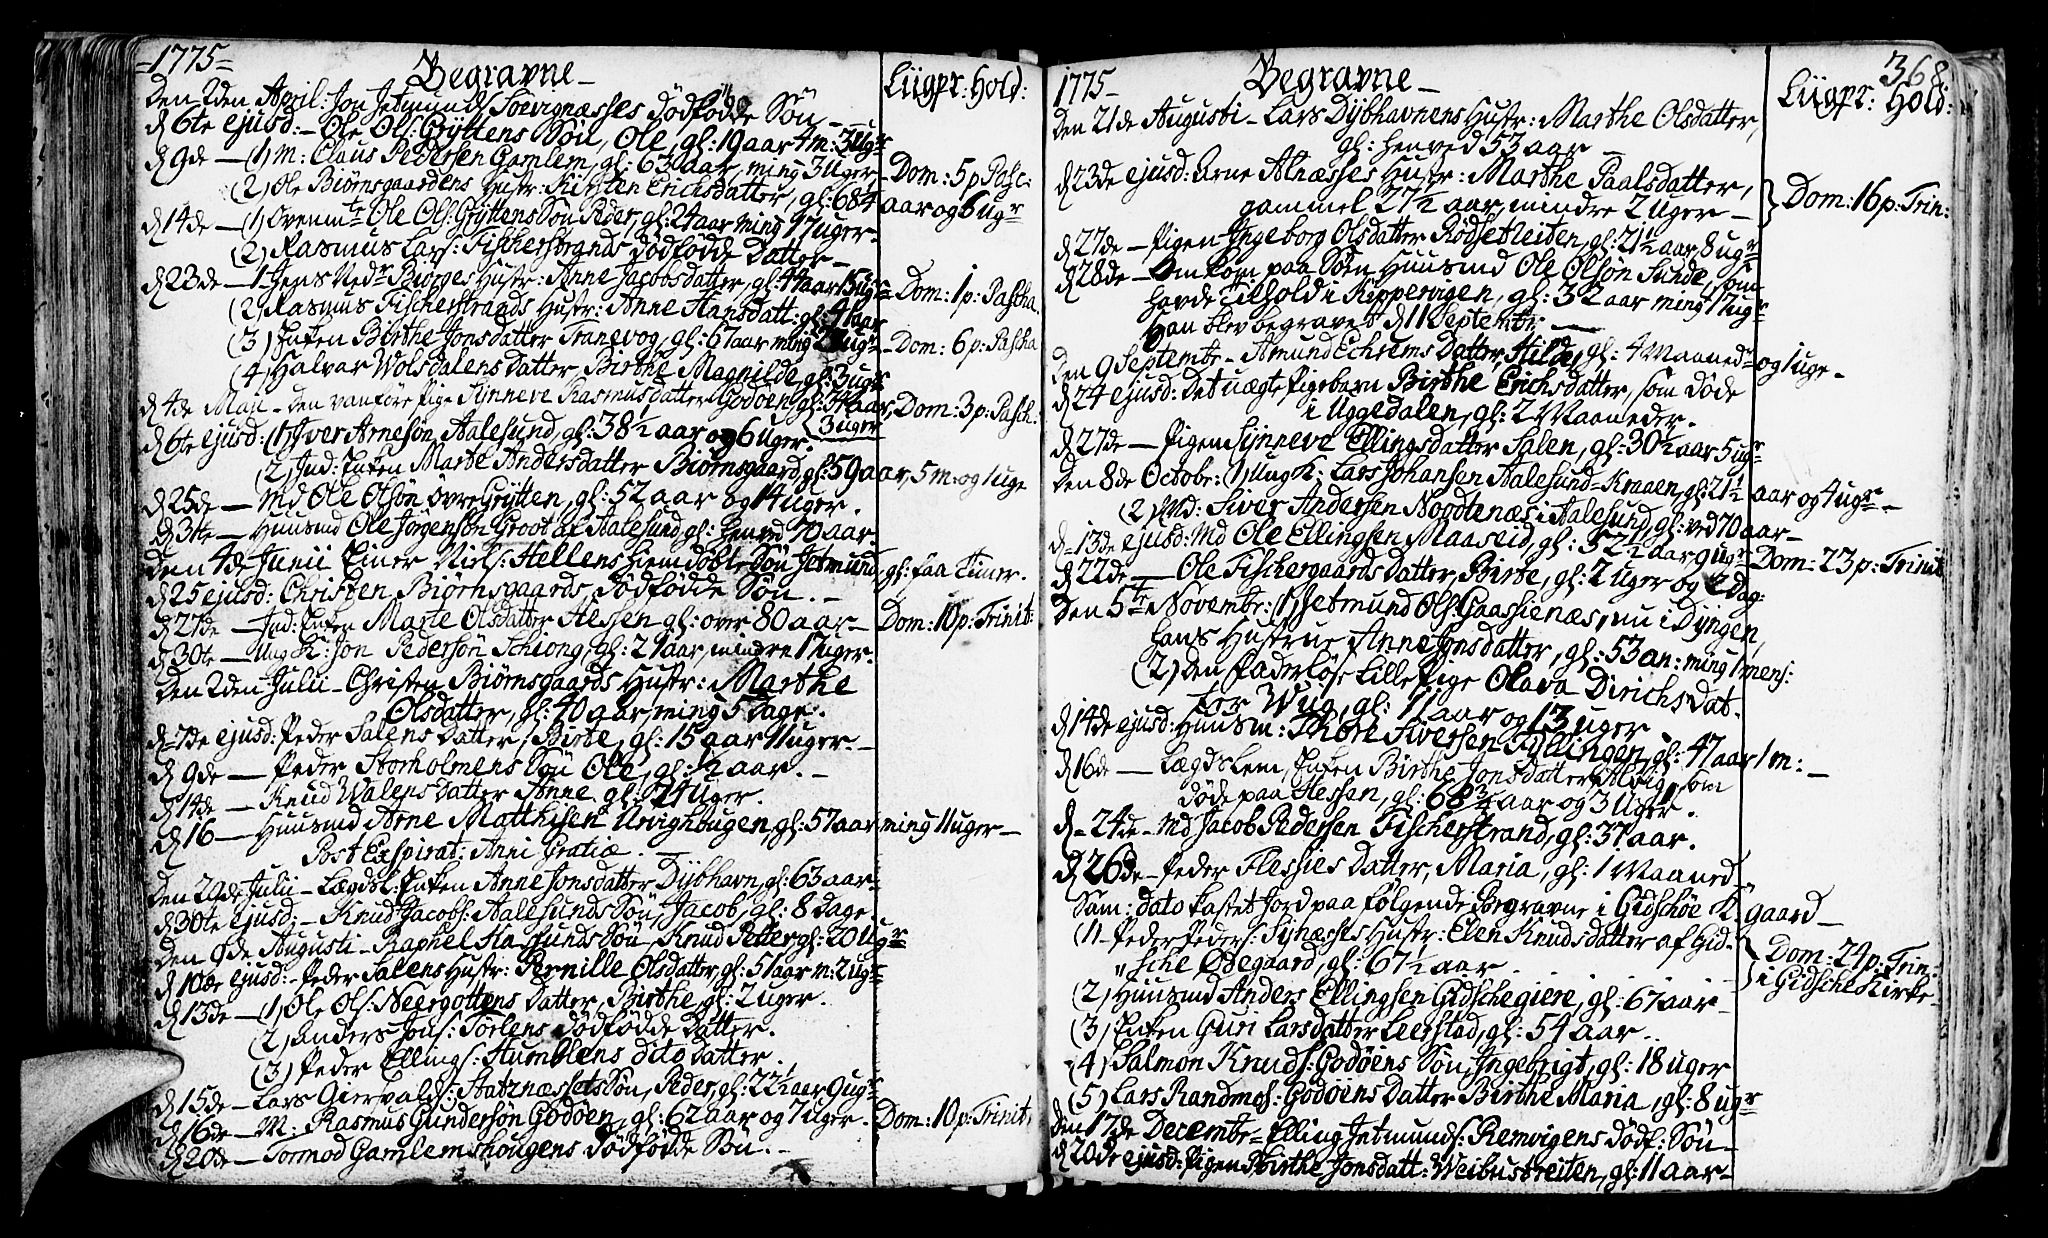 =1775=
Begravne
Liigpr: Hold:
Den 2den April: Jon Jetmunds Soevignæsses dödfödde Sön
d 6te ejusd: Ole Ols: Gryttens Sön, Ole, gl: 19 aar 4 m: 3 ugr
d 9de (1) M: Claus Pedersen Gamlem, gl: 63 aar, ming 3 Uger Dom: 5 p: Pasc:
(2) Ole Biörnsgaardens Hustr: Kirsten Erichsdatter, gl: 68 4 aar og 6 ugr
d 14de (1) Ovenm.te Ole Ols: Gryttens Sön Peder, gl: 24 aar ming 17 uger
(2) Rasmus Lars: Fischerstrands dödfödde Datter
d 23de 1. Jens Nedr Biorges Hustr: Anne Jacobsdatter, gl: 44 aar 15 ugr Dom: 1 p: Pascha
(2) Rasmus Fischerstrands Hustr: Anne Hansdatt: gl: 41 aar
(3) Enken Birthe Jonsdatter Tranevog, gl: 67 aar ming 2 ugr Dom: 6 p: Pascha
(4) Halvar Wolsdalens Datter, Birthe Magnilde, gl: 3 ugr
d 4de Maji - Den vanföre Pige Synneve Rasmusdatter Godöen, gl: 34 aar Dom: 3 p: Pasch:
3 uger
d 6te ejusd: (1) Iver Arnesön Aalesund, gl: 38½ aar og 6 Uger.
(2) Ind: Enken Marte Andersdatter Biörnsgaard, gl: 59 aar, 5 m: og 1 uge
d 25de - Md Ole Olsön övre Grytten, gl: 52 aar og 14 Uger.
d 31te - Huusmd Ole Jörgensön Groot af Aalesund, gl: henved 70 aar
Den 4de Junii Einer Niels: Hellens hiemdöbte Sön Jetmund, gl: faa Timer.
d 25 ejusd: Christen Biörnsgaards dödfödde Sön.
d 27de - Ind: Enken Marte Olsdatter Hessen gl: over 80 aar Dom: 10 p: Trinit:
d 30te - Ung K: Jon Pedersön Schiong, gl: 21 aar, mindre 17 uger.
Den 2den Julii - Christen Biörnsgaards Hustr: Marthe
Olsdatter, gl: 40 aar ming 5 Dage.
d 7de ejusd: Peder Salens Datter, Birte, gl: 15 aar 11 uger.
d 9de - Peder Storholmens Sön Ole, gl: ½ aar.
d 14de - Knud Walens Datter Anne gl: 24 Uger.
d 16 - Huusmd Arne Matthisen Urvighbugen, gl: 57 aar ming 11 uger
Post Exspirat: Anni Gratiæ.
Den 20de Julii - Lægdsl: Enken Anne Jonsdatter Dybhavn, gl: 63 aar
d 30te ejusd: Knud Jacobs: Aalesunds Sön, Jacob, gl: 8 dage.
Den 9de Augusti - Raphel Hassunds Sön, Knud Petter, gl: 20 ugr
d 10de ejusd: Peder Salens Hustr: Pernille Olsdatter, gl: 51 aar m: 2 ugr
d 13de - (1) Ole Ols: Neergottens Datter, Birthe, gl: 2 Uger.
(2) Anders Jons: Törlens dödfödde Datter.
(3) Peder Ellings: Humblens dito Datter.
d 15de - Lars Giervalds: Statznæssets Sön, Peder, gl: 22½ aar 9 ugr
d 16de - M: Rasmus Gundersön Godöen, gl: 62 aar og 7 uger. Dom: 10 p: Trinit.
d 20de - Tormod Gamlemshougens dödfödde Sön.
368
1775
Begravne
Liigpr: Hold:
Den 21de Augusti - Lars Dybhavnens Hustr: Marthe Olsdatter,
gl: henved 53 aar
d 23de ejusd: Arne Alnæsses Hustr: Marthe Paalsdatter,
gammel 27½ aar, mindre 2 uger Dom: 16 p: Trin:
d 27de - Pigen Ingeborg Olsdatter Rödsetleiten, gl: 21½ aar 8 ugr
d 28de - Omkom paa Söen Huusmd Ole Olsön Sunde, som
havde Tilhold i Kippervigen, gl: 32 aar ming 17 ugr
Han blev begravet d 11 Septembr
Den 9 Septembr - Amund Echrems Datter, Hilde, gl: 4 Maaneder og 1 uge
d 24 ejusd: Det uægte Pigebarn Birthe Erichsdatter, som döde
i Uggedalen, gl: 2 Maaneder.
d 27de - Pigen Synneve Ellingsdatter Salen, gl: 30½ aar 5 ugr
Den 8de Octobr: (1) Ung K: Lars Johansen Aalesund-Kraaen, gl: 21½ aar og 4 ugr
(2) Md: Siver Andersen Noodtenæs i Aalesund, gl: ved 70 aar
d 13de ejusd: Md Ole Ellingsen Maaseid, gl: 52½ aar 9 ugr Dom: 23 p: Trinit
d 22de - Ole Fischergaards Datter, Birte, gl: 2 uger og 2 dag:
Den 5te Novembr: (1) Jetmund Ols: Gaasnes, nu i Dyngen,
hans Hustrue Anne Jonsdatter, gl: 53 an: ming 1 mens:
(2) Den Faderlöse Lille Pige Olava Dirichs Dat-
ter Wug, gl: 11 aar og 13 uger
d 14de ejusd: Huusm: Thore Siversen Fyllingen, gl: 47 aar 1 m:
d 16de - Lægdslem, Enken Birthe Jonsdatter Alvig, som
döde paa Hessen, gl: 68¾ aar og 3 Uger.
d 24de - Md Jacob Pedersen Fischerstrand, gl: 37 aar.
d 26de - Peder Flessies Datter, Maria, gl: 1 Maaned
Sam: dato kastet Jord paa fölgende Begravne i Gidschöe K.gaard
(1) Peder Peders: Synæsses Hustr: Elen Knudsdatter af Gid-
sche Ödegaard, gl: 67½ aar Dom: 24 p: Trin:
i Gidsche Kirke
(2) Huusmd Anders Ellingsen Gidschegiere, gl: 67 aar
(3) Enken Guri Larsdatter Leerstad, gl: 54 aar.
(4) Salmon Knuds: Godöens Sön, Ingebrigt, gl: 18 uger
(5) Lars Randmos: Godöens Datter Birthe Maria, gl: 8 ugr
Den 17de Decembr - Elling Jetmunds: Remvigens dödf: Sön
d 20de ejusd: Pigen Birthe Jonsdatt: Weibustreiten, gl: 11 aar